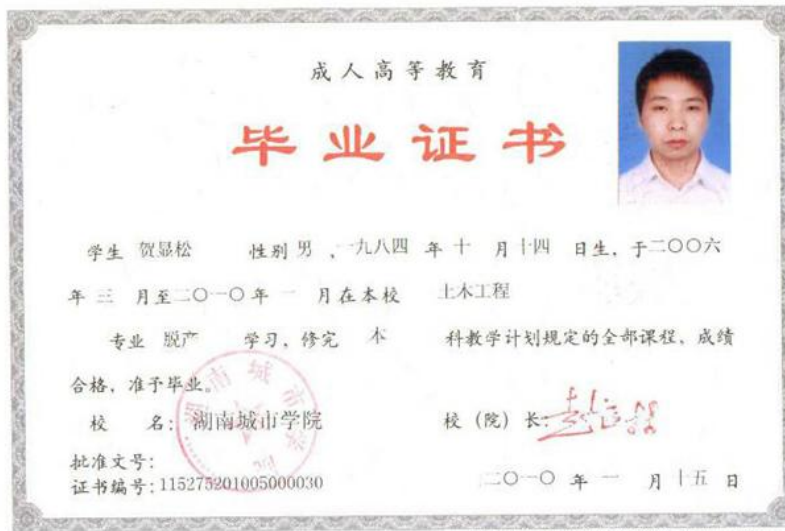 成人高等教育
毕业证书
学生 贺显松 性别 男 、一九八四 年 十 月 十四 日生，于二〇〇六
年 三 月至二〇一〇年 一 月在本校 土木工程
专业 脱产 学习，修完 本 科教学计划规定的全部课程，成绩
合格，准予毕业。
校 名：湖南城市学院 校（院）长：
批准文号：
证书编号：115275201005000030 二〇一〇 年 一 月 十五 日
湖南城市学院